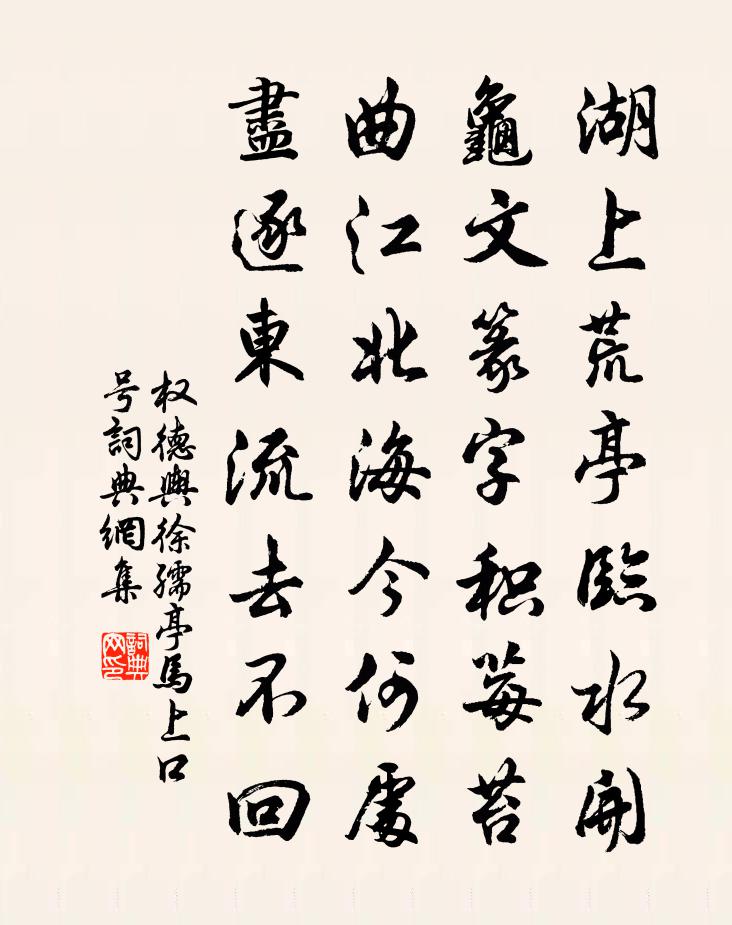 湖上荒亭臨水開
龜文篆字积莓苔
曲江北海今何處
盡逐東流去不回
权德輿徐孺亭馬上口
号詞典網集
詞典网印